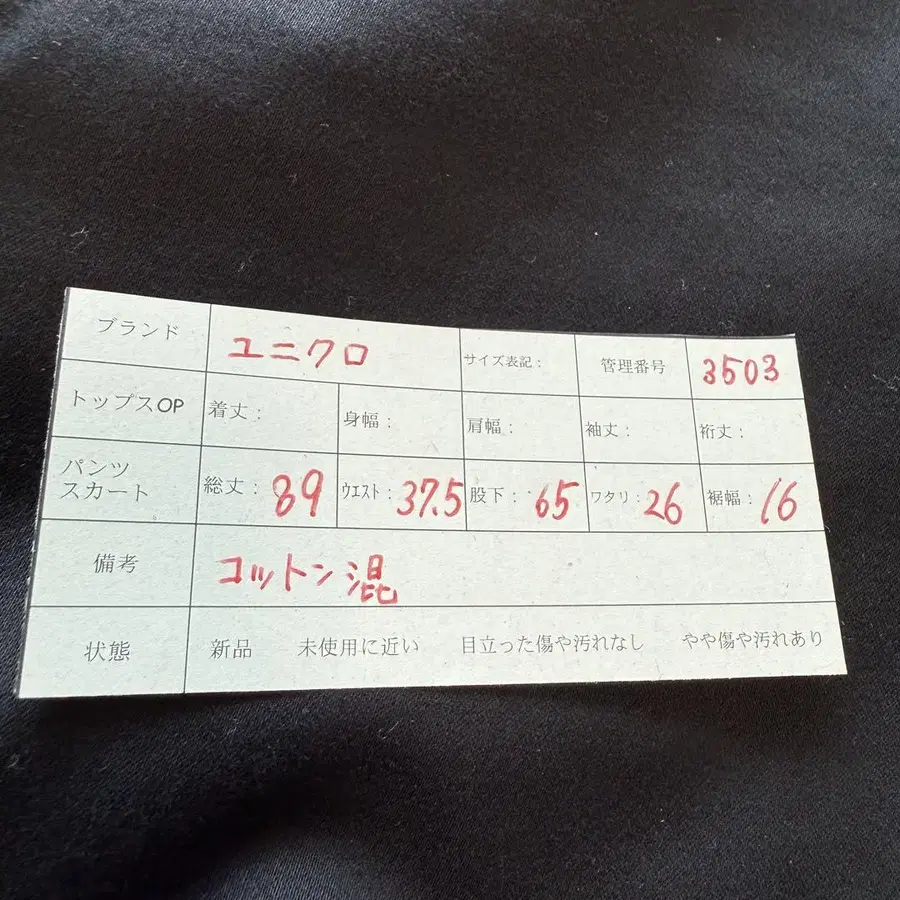 ブランド ユニクロ サイズ表記： 管理番号 3503
トップスOP 着丈： 身幅： 肩幅： 袖丈： 裄丈：
パンツ
スカート 総丈：89 ウエスト：37.5 股下：65 ワタリ：26 裾幅：16
備考 コットン混
状態 新品 未使用に近い 目立った傷や汚れなし やや傷や汚れあり